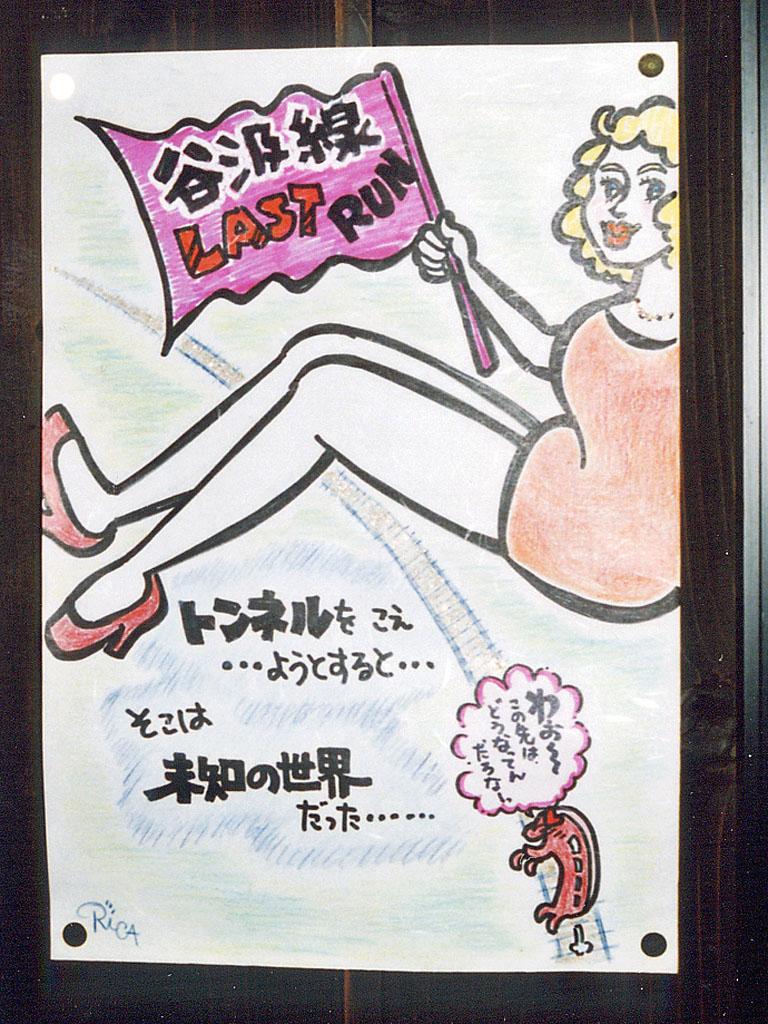 谷汲線
LAST RUN
トンネルをこえ
…ようとすると…
そこは
未知の世界
だった……
わお〜
この先は、
どうなってん
だろな〜
RiCA